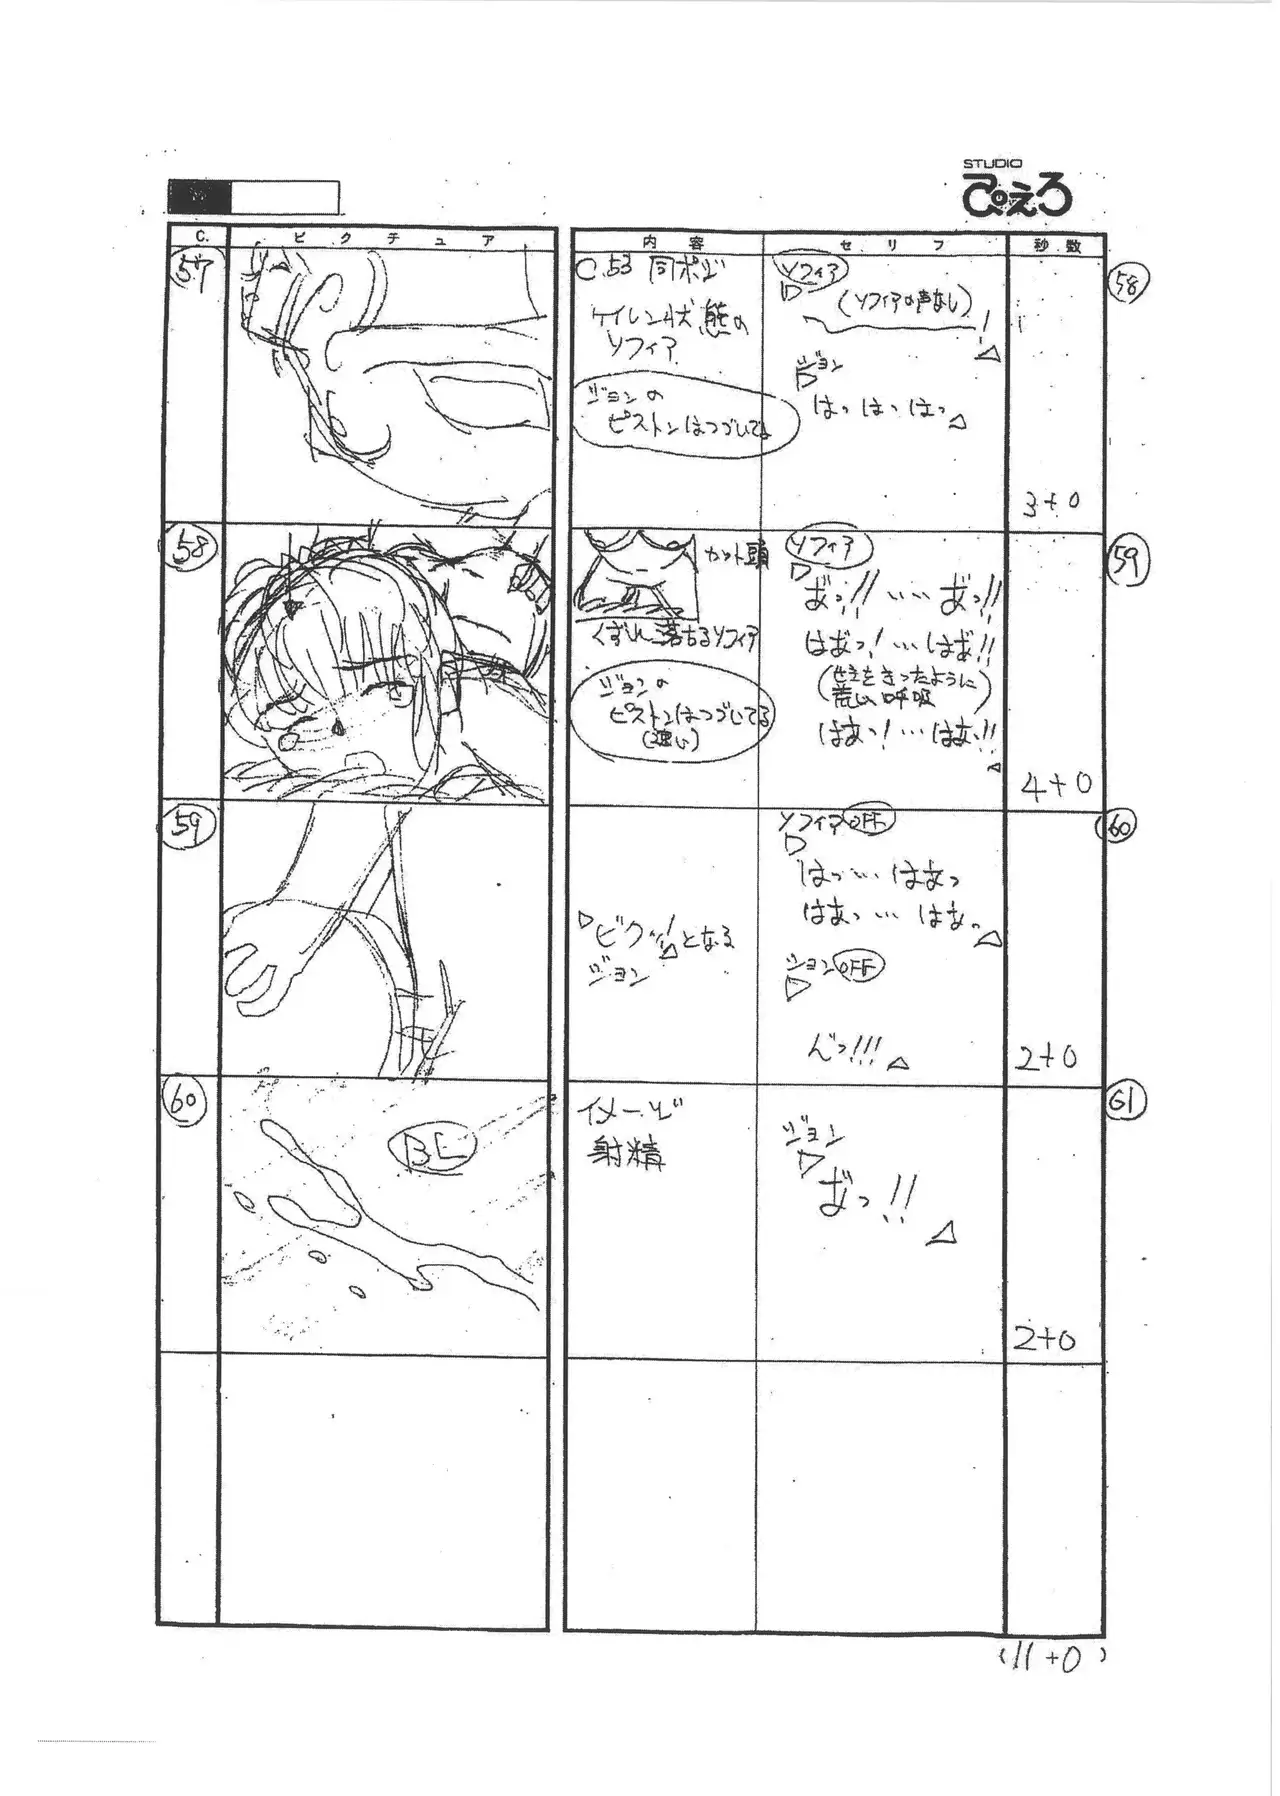 STUDIO
ぴえろ
C.
ピクチュア
内容
セリフ
秒数
57
C.53 同ポジ
ケイレン状態の
ソフィア
ジョンの
ピストンはつづいてる
ソフィア
(ソフィアの声なし)
ジョン
はっはっはっ
3+0
58
58
カット頭
くずれ落ちるソフィア
ジョンの
ピストンはつづいてる
(速い)
ソフィア
あ゛っ!! ‥‥ あ゛っ!!
はあ゛っ! … はあ゛!!
(せきをきったように
荒い呼吸)
はあっ! … はあっ!!
4+0
59
59
▷ビクッ!となる
ジョン
ソフィアOFF
はっ‥‥ はあっ
はあっ… はあっ
ジョンOFF
んっ!!!
2+0
60
60
BL
イメージ
射精
ジョン
あ゛っ!!
2+0
61
(11+0)